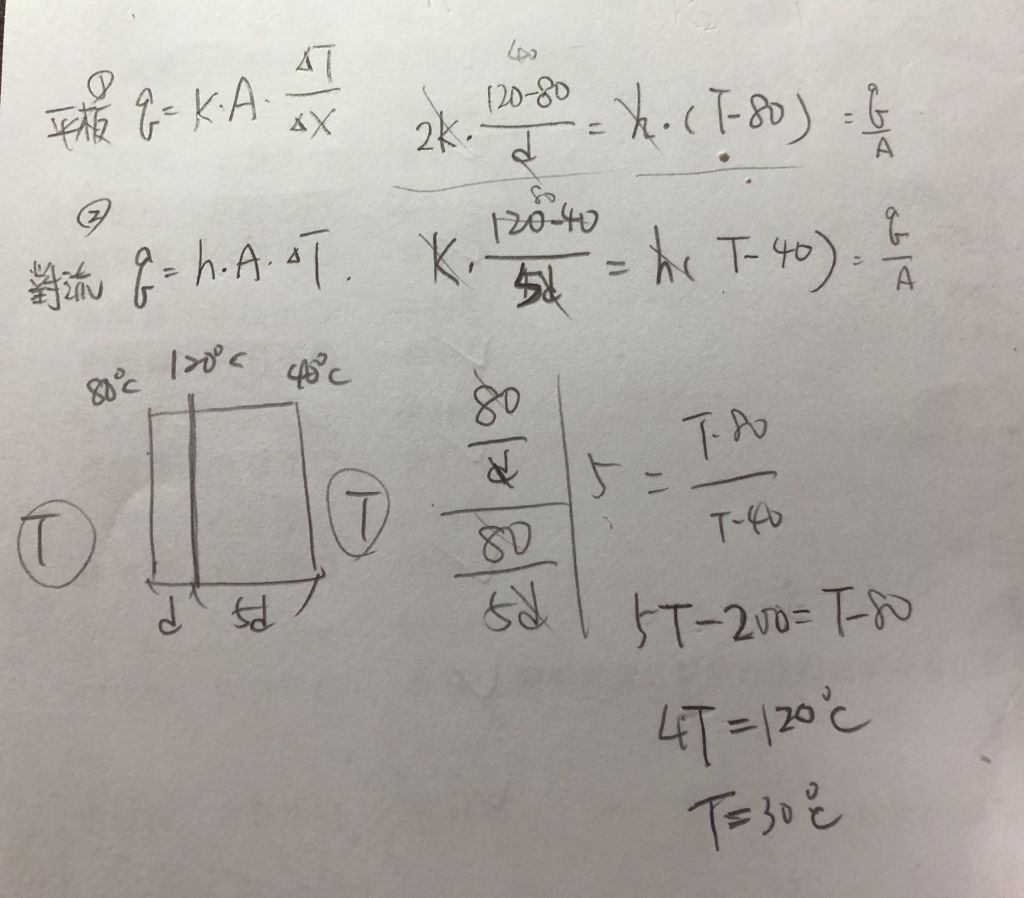 ①
平板 q = K·A· ΔT/ΔX
400
2K· 120-80/d = h·(T-80) = q/A
②
對流 q = h·A·ΔT.
80
K· 120-40/5d = h( T-40) = q/A
80°C 120°C 40°C
T T
d 5d
80/d
80/5d
5 = T-80/T-40
5T-200 = T-80
4T = 120°C
T = 30°C